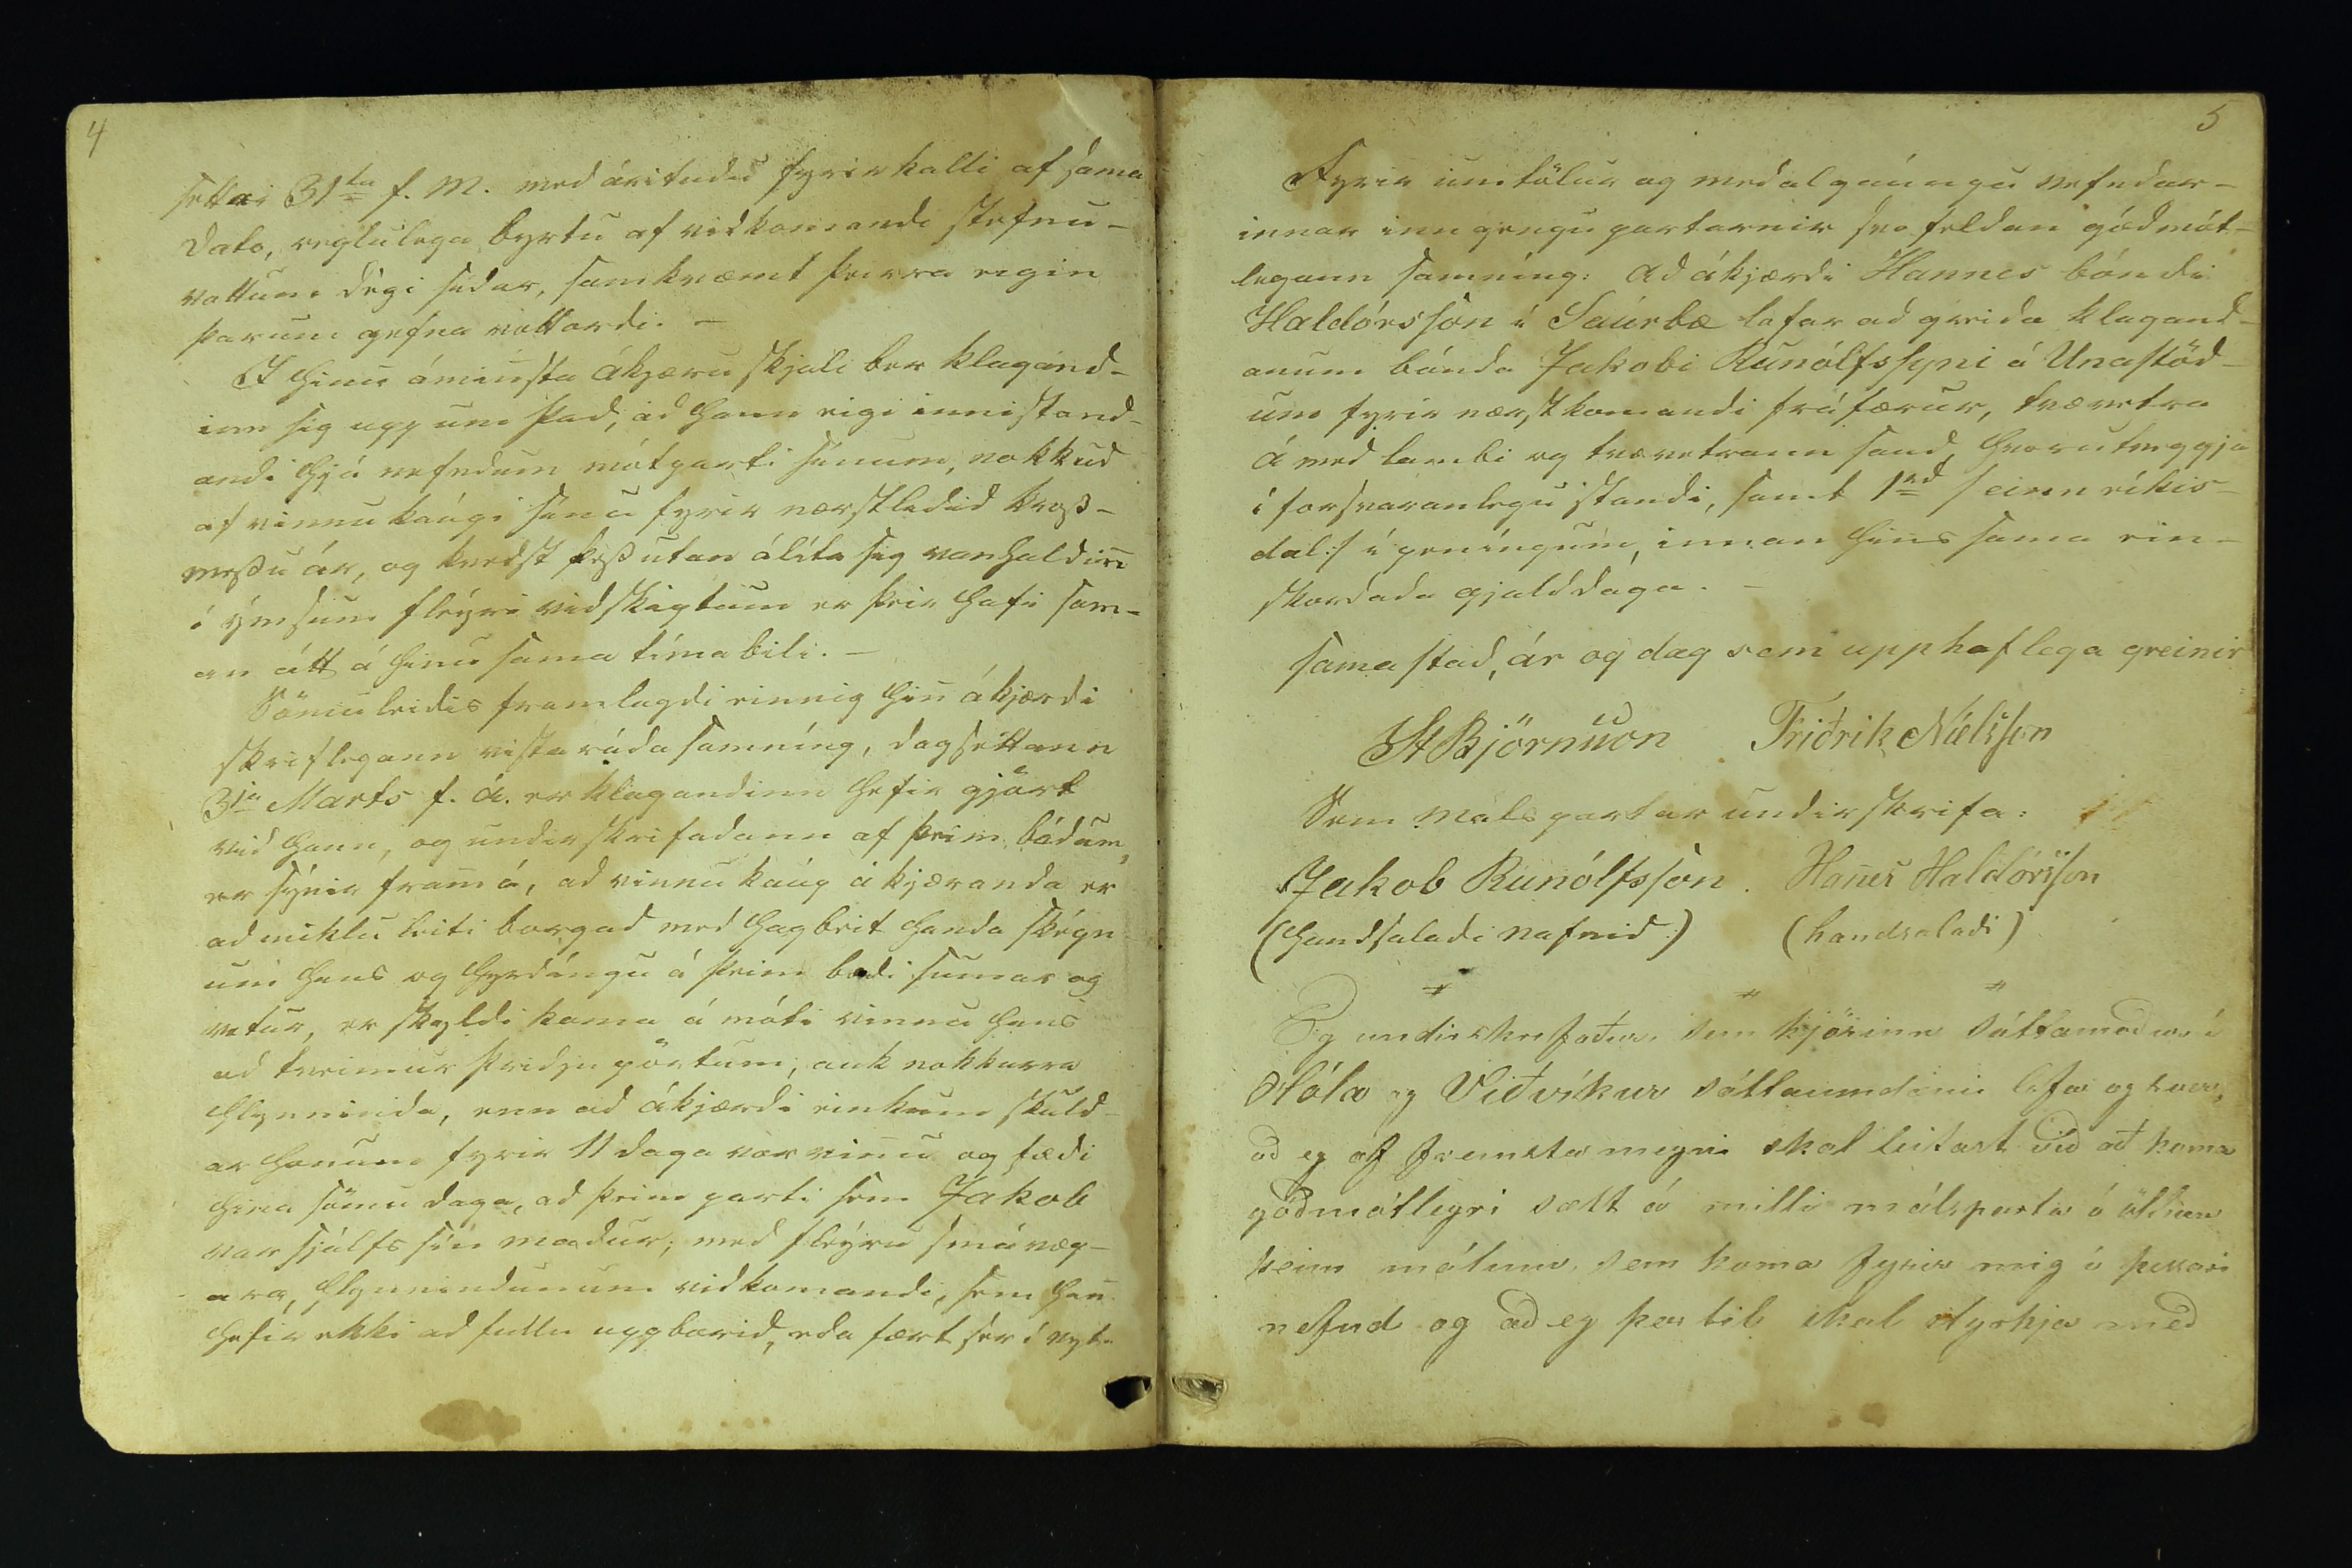 4
settri 31ta f. M. med árituðu fyrirkalli af sama
Dato, reglulega byrtu af viðkomandi stefnu-
vottum degi sidar, samkvæmt þeirra eigin
þarum gefna vottordi. —
I hinu áminsta ákjæru skjali ber klagand-
inn sig upp um þad, ad hann eigi innistand-
andi hjá nefndum mótparti sínum, nokkud
af vinnu kaúpi sínu fyrir næstledid kross-
messu ár, og kvedst þess utan álíta sig vanhaldinn
í ýmsum fleýri vidskiptum er þeir hafi sam-
an átt á hinu sama tímabili. —
Sömuleidis framlagdi einnig hinn ákjærdi
skriflegann vistaráda samníng, dagsettann
31a Marts f. á. er klagandinn hefir gjört
vid hann, og underskrifadann af þeim bádum,
er sýnir framá, ad vinnu kaúp ákjæranda er
ad miklu leiti borgad med hagbeit handa sképn
um hans og hyrdíngu á þeim bædi sumar og
vetur, er skyldi koma á móti vinnu hans
ad tveimur þridju pörtum; auk nokkurra
hlynninda, enn ad ákjærdi einkum skuld-
ar honum fyrir 11 daga vor vinnu og fædi
hina sömu daga, ad þeim parti sem Jakob
var sjálfs sín madur; med fleýru smáveg-
ara, hlynnindunum vidkomandi, sem hann
hefir ekki ad fullu uppborid, eda fært sér í nyt.
5
Fyrir umtölur og medalgaúngu nefndar-
innar inn gengu partarnir svo feldan gódmót-
legann samníng: Ad ákjærdi Hannes bóndi
Haldórsson í Saúrbæ lofar ad greida klagand-
anum bónda Jakobi Runólfssyni á Unastöd-
um fyrir næstkomandi fráfærur, tvævetra
á med lambi og tvævetrann saud, hvorutveggja
í forsvaranlegu standi, samt 1rd / einn ríkis-
dal :/ í peníngum, innan hins sama ein-
skordada gjalddaga. —
sama stad, ár og dag sem upphaflega greinir
St Björnsson Friðrik Nielsson
Sem málspartar undirskrifa:
Jakob Runólfsson. Hannes Haldórsson
(handsaladi nafnid) (handsaladi)
Eg undirskrifaður sem kjörinn Sáttamaður í
Hóla og Viðvíkur sáttaumdæmi lofa og sver,
að eg af fremsta megni skal leitast við að koma
góðmótlegri sætt á milli málsparta í öllum
þeim málum, sem koma fyrir mig í þessari
nefnd og að eg þar til skal styrkja með